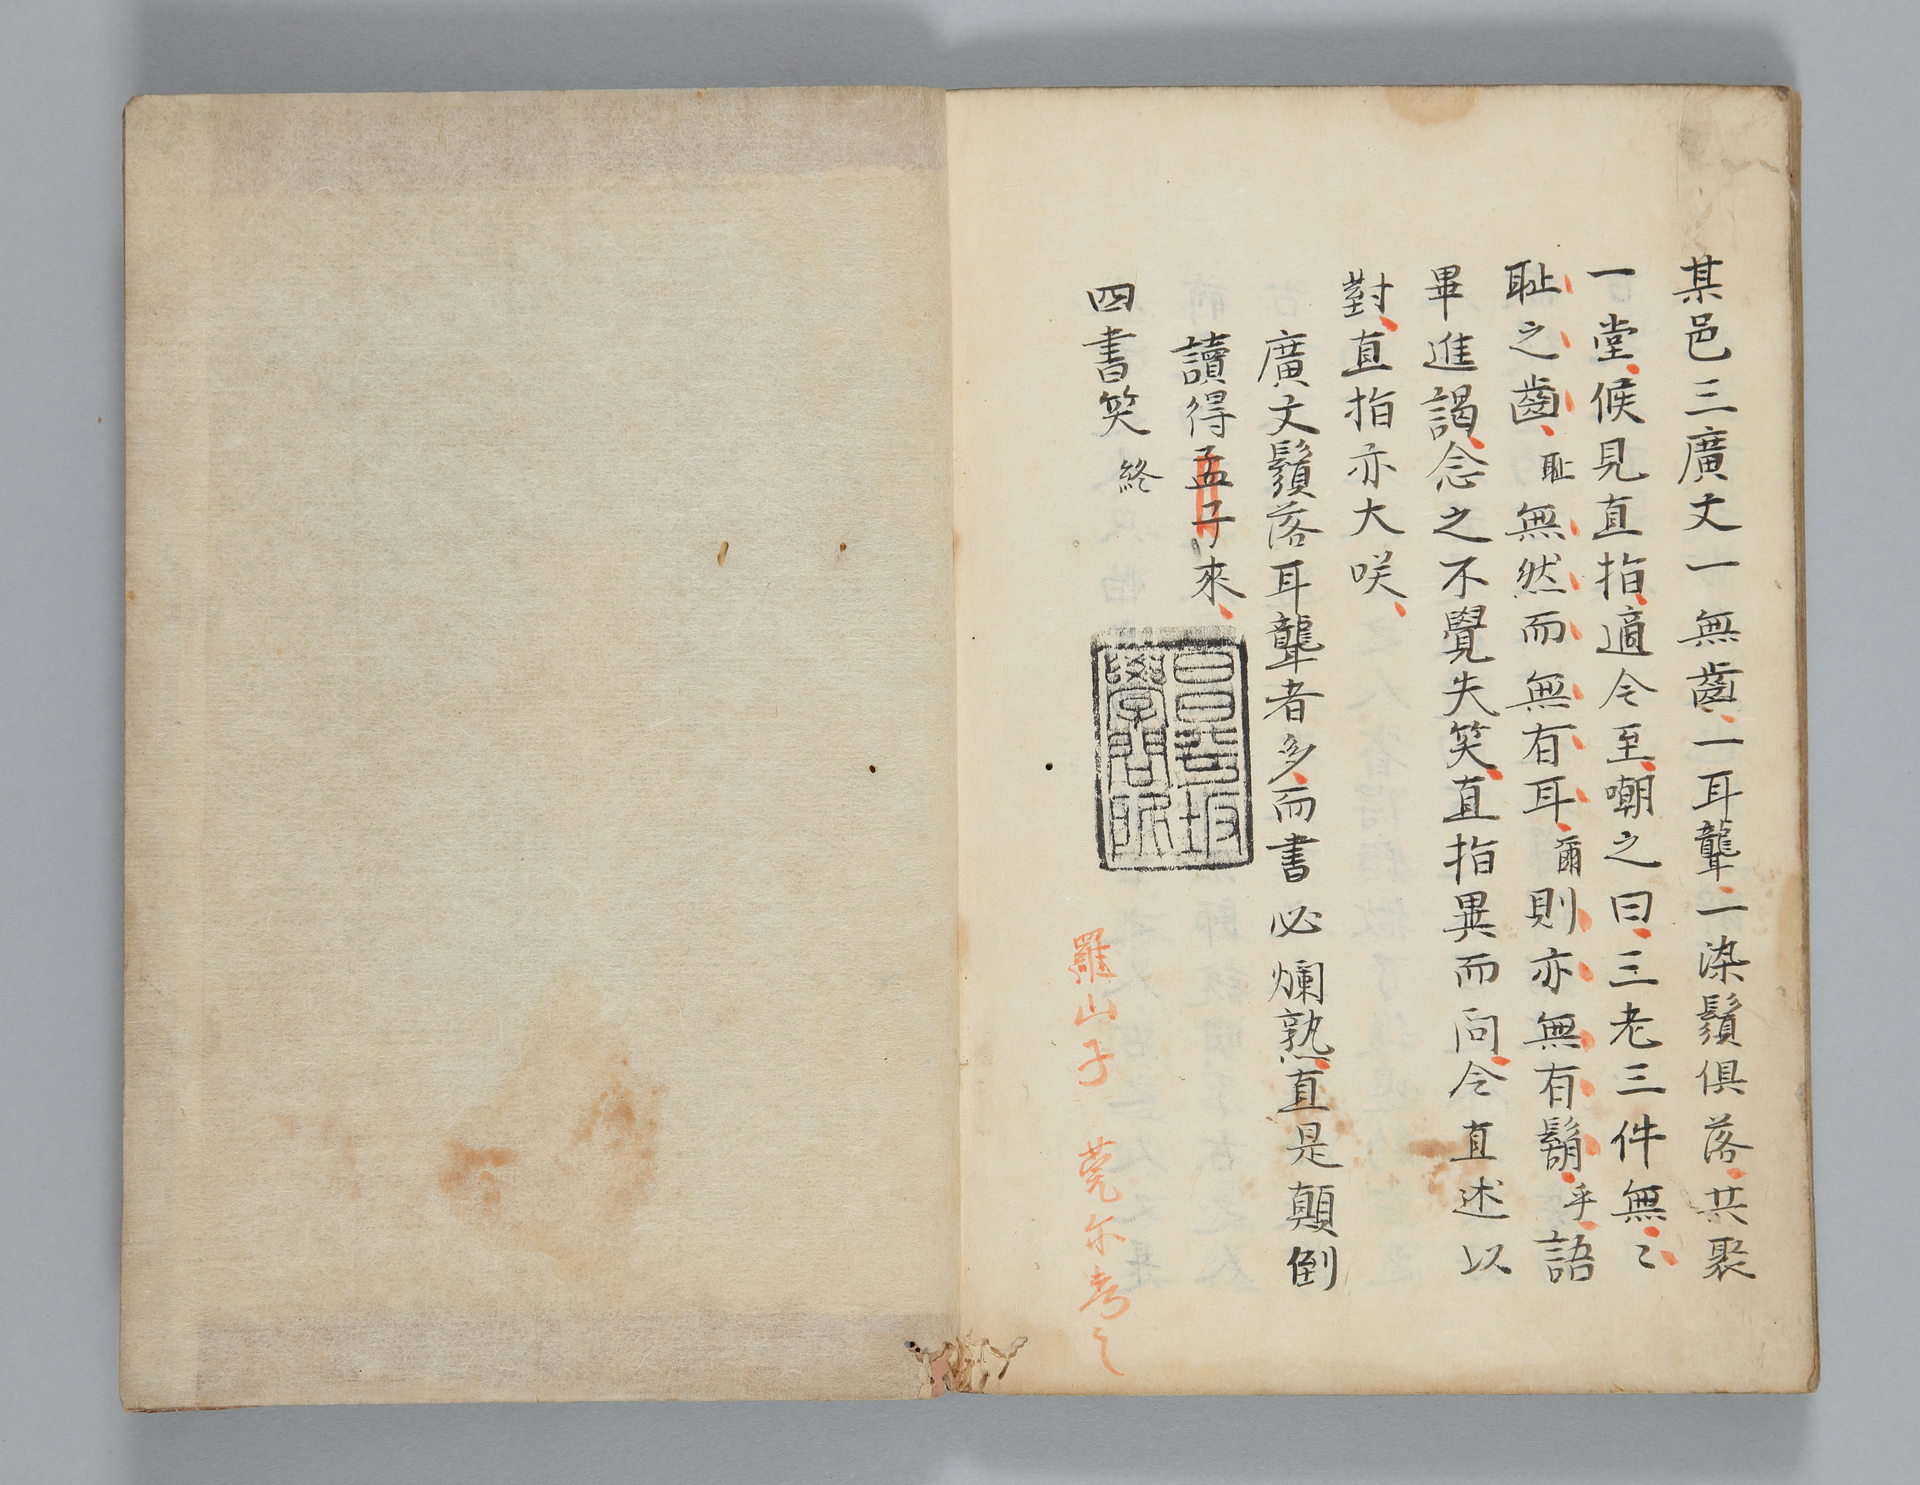 某邑三廣文一無齒一耳聾一染鬚俱落共聚
一堂候見直指適令至嘲之曰三老三件無〻
耻之齒耻無然而無有耳爾則亦無有鬍乎語
畢進謁念之不覺失笑直指異而问令直述以
對直指亦大咲
廣文鬚落耳聾者多而書必爛熟直是顛倒
讀得孟子來
四書笑終
昌平坂
學問所
羅山子 莞尔考之